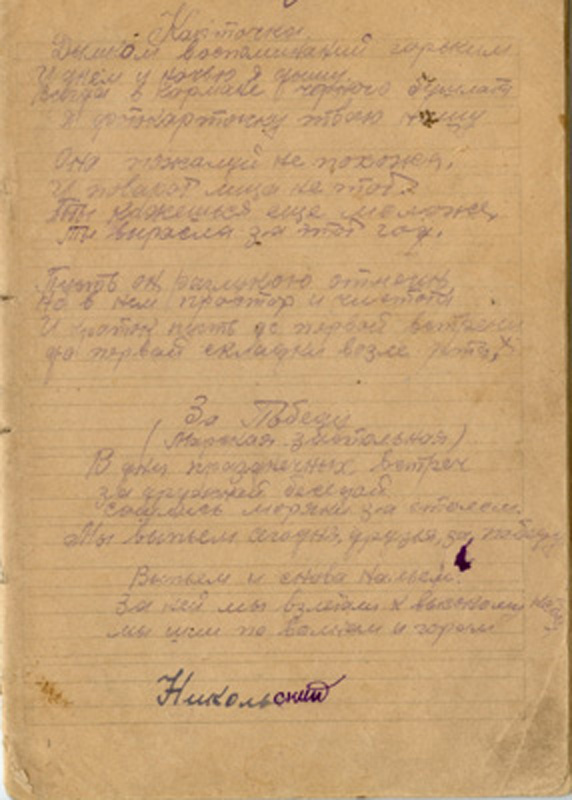 Карточка
Дымком воспоминаний горьким
И днём и ночью я дышу
Всегда в кармане чёрного бушлата
Я фотокарточку твою ношу
Она пожалуй не похожа,
И поворот лица не тот
Ты кажешься еще моложе,
Ты выросла за тот год.
Пусть он разлукою отмечен
Но в нем простор и чистота
И краток путь до первой встречи
До первой складки возле рта,
За Победу
(Морская застольная)
В дни праздничных встреч
за дружной беседой
сошлись моряки за столом.
Мы выпьем сегодня, друзья, за победу
Выпьем и снова нальем.
За ней мы взлетали к высокому
мы шли по волнам и горам
Никольский